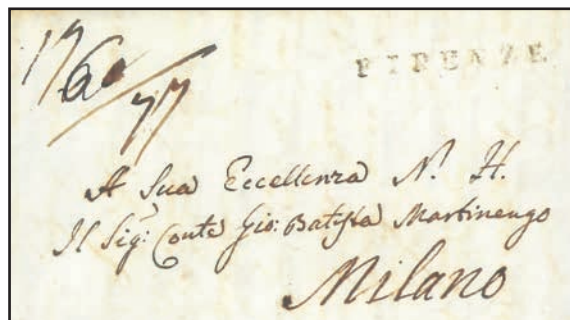 FIRENZE
A Sua Eccellenza N. H.
Il Sig.r Conte Gio: Batista Martinengo
Milano